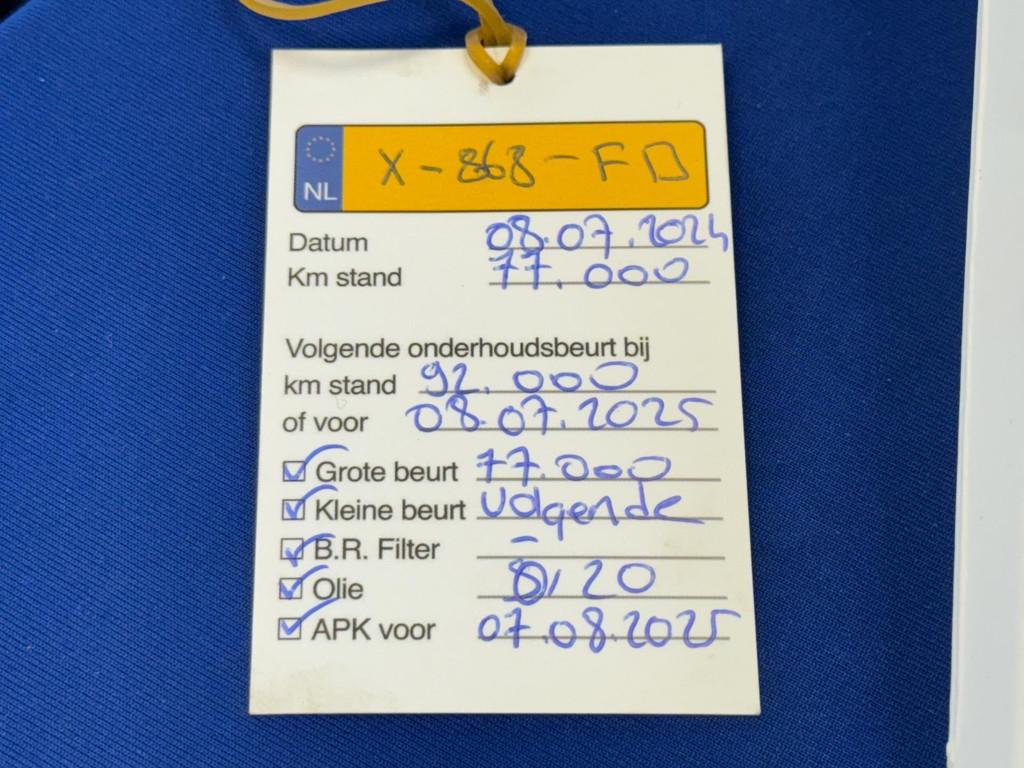 NL X-868-FD
Datum 08.07.2024
Km stand 77.000
Volgende onderhoudsbeurt bij
km stand 92.000
of voor 08.07.2025
Grote beurt 77.000
Kleine beurt volgende
B.R. Filter -
Olie 0/20
APK voor 07.08.2025